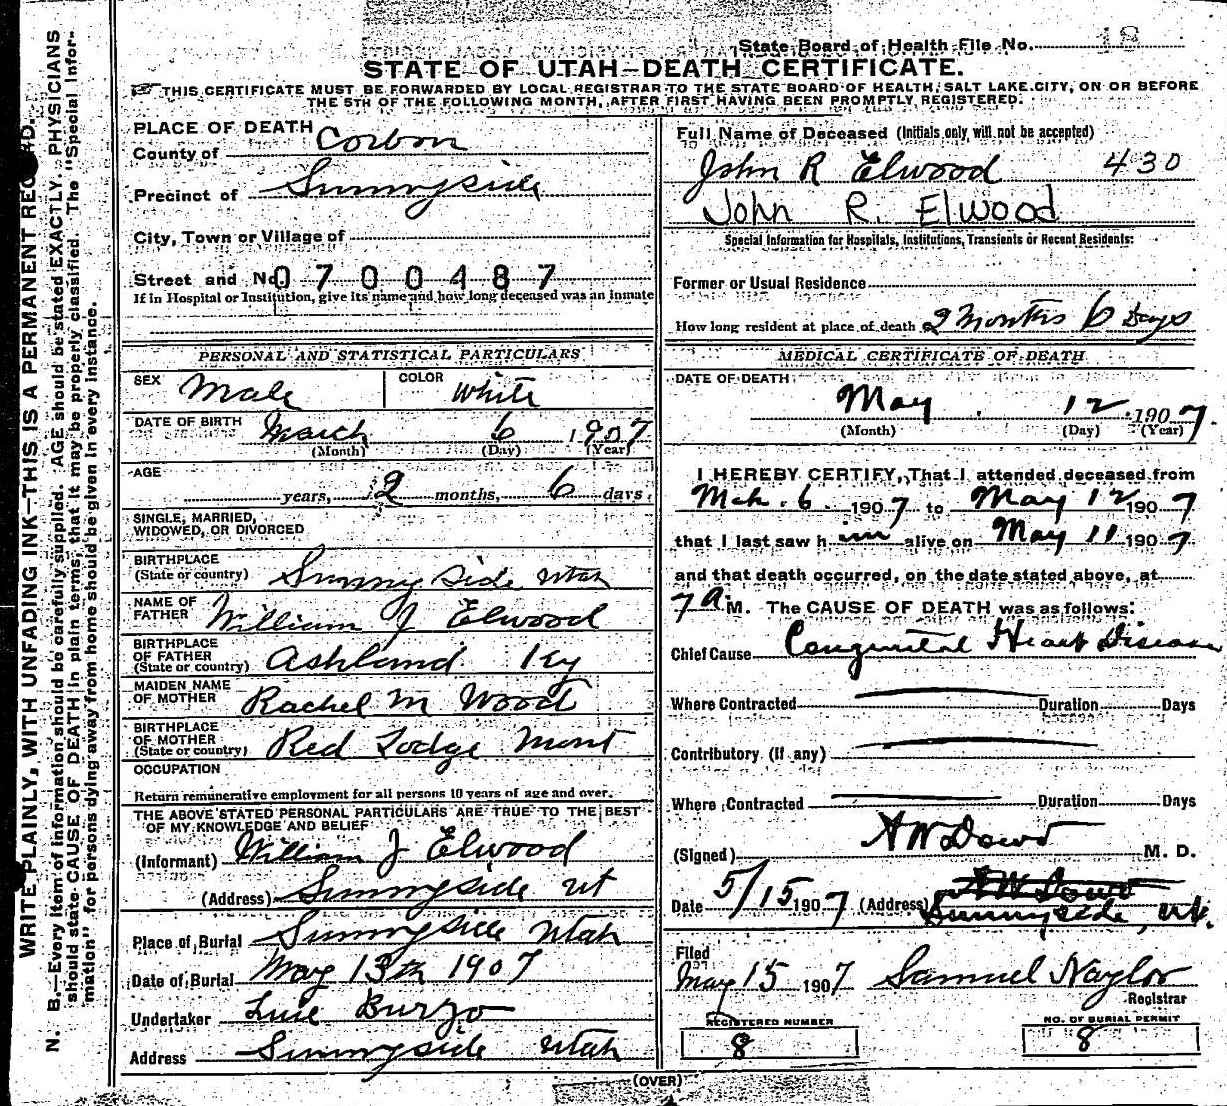 State Board of Health File No. 18
STATE OF UTAH—DEATH CERTIFICATE.
THIS CERTIFICATE MUST BE FORWARDED BY LOCAL REGISTRAR TO THE STATE BOARD OF HEALTH, SALT LAKE CITY, ON OR BEFORE
THE 5TH OF THE FOLLOWING MONTH, AFTER FIRST HAVING BEEN PROMPTLY REGISTERED.
WRITE PLAINLY, WITH UNFADING INK—THIS IS A PERMANENT RECORD.
N. B.—Every item of information should be carefully supplied. AGE should be stated EXACTLY. PHYSICIANS
should state CAUSE OF DEATH in plain terms, that it may be properly classified. The "Special Infor-
mation" for persons dying away from home should be given in every instance.
PLACE OF DEATH
County of Corbon
Precinct of Sunnyside
City, Town or Village of
Street and No. 0700487
If in Hospital or Institution, give its name and how long deceased was an inmate
PERSONAL AND STATISTICAL PARTICULARS
SEX Male COLOR White
DATE OF BIRTH March 6 1907
(Month) (Day) (Year)
AGE
years, 2 months, 6 days.
SINGLE, MARRIED,
WIDOWED, OR DIVORCED
BIRTHPLACE
(State or country) Sunnyside Utah
NAME OF
FATHER William J Elwood
BIRTHPLACE
OF FATHER
(State or country) Ashland Ky
MAIDEN NAME
OF MOTHER Rachel M Wood
BIRTHPLACE
OF MOTHER
(State or country) Red Lodge Mont
OCCUPATION
Return remunerative employment for all persons 10 years of age and over.
THE ABOVE STATED PERSONAL PARTICULARS ARE TRUE TO THE BEST
OF MY KNOWLEDGE AND BELIEF
(Informant) William J Elwood
(Address) Sunnyside Ut
Place of Burial Sunnyside Utah
Date of Burial May 13th 1907
Undertaker Burgo
Address Sunnyside Utah
Full Name of Deceased (Initials only, will not be accepted)
John R Elwood 430
John R. Elwood
Special Information for Hospitals, Institutions, Transients or Recent Residents:
Former or Usual Residence
How long resident at place of death 2 Months 6 Days
MEDICAL CERTIFICATE OF DEATH
DATE OF DEATH
May 12 1907
(Month) (Day) (Year)
I HEREBY CERTIFY, That I attended deceased from
Mch. 6 1907 to May 12 1907
that I last saw him alive on May 11 1907
and that death occurred, on the date stated above, at
7 A M. The CAUSE OF DEATH was as follows:
Chief Cause Congenital Heart Disease
Where Contracted Duration Days
Contributory (if any)
Where Contracted Duration Days
(Signed) A W Dowd M. D.
Date 5/15 1907 (Address) A W Dowd
Sunnyside, Ut.
Filed
May 15 1907 Samuel Naylor
Registrar
REGISTERED NUMBER
8
NO. OF BURIAL PERMIT
8
(OVER)